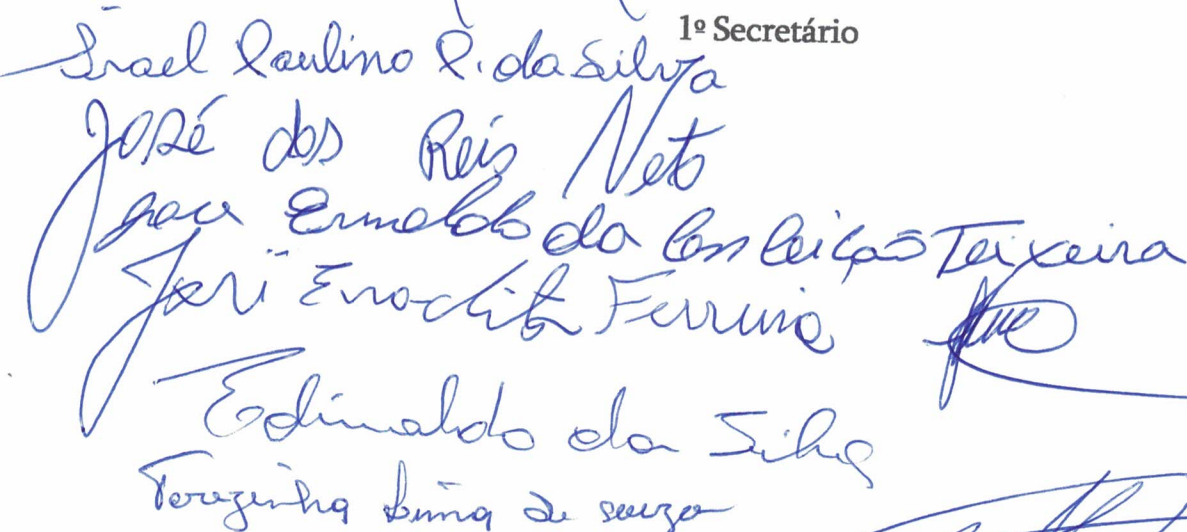 1º Secretário
Israel Paulino P. da Silva
José dos Reis Neto
Ernaldo da Conceição Teixeira
Ferreira
Edinaldo da Silva
Terezinha Lima de souza